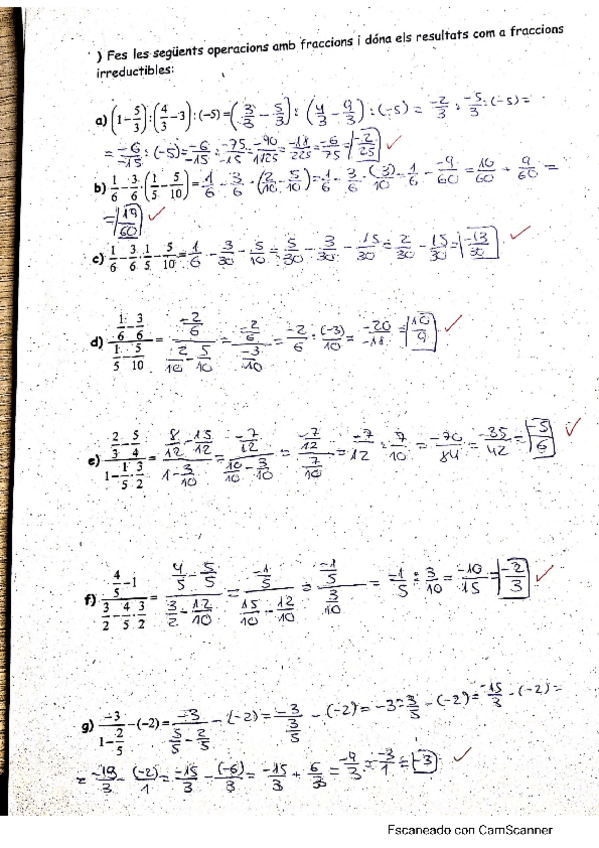 ) Fes les següents operacions amb fraccions i dóna els resultats com a fraccions
irreductibles:
a) (1 - 5/3) : (4/3 - 3) : (-5) = (3/3 - 5/3) : (4/3 - 9/3) : (-5) = -2/3 : -5/3 : (-5) =
= -6/-15 : (-5) = -6/-15 : -75/-15 = -90/1125 = -18/225 = -6/75 = -2/25
b) 1/6 - 3/6 · (1/5 - 5/10) = 1/6 - 3/6 · (2/10 - 5/10) = 1/6 - 3/6 · (-3)/10 = 1/6 - -9/60 = 10/60 + 9/60 =
= 19/60
c) 1/6 - 3/6 · 1/5 - 5/10 = 1/6 - 3/30 - 5/10 = 5/30 - 3/30 - 15/30 = 2/30 - 15/30 = -13/30
d) (1/6 - 3/6)/(1/5 - 5/10) = (-2/6)/(2/10 - 5/10) = (-2/6)/(-3/10) = -2/6 : (-3)/10 = -20/-18 = 10/9
e) (2/3 - 5/4)/(1 - 1/5 · 3/2) = (8/12 - 15/12)/(1 - 3/10) = (-7/12)/(10/10 - 3/10) = (-7/12)/(7/10) = -7/12 : 7/10 = -70/84 = -35/42 = -5/6
f) (4/5 - 1)/(3/2 - 4/5 · 3/2) = (4/5 - 5/5)/(3/2 - 12/10) = (-1/5)/(15/10 - 12/10) = (-1/5)/(3/10) = -1/5 : 3/10 = -10/15 = -2/3
g) -3/(1 - 2/5) - (-2) = -3/(5/5 - 2/5) - (-2) = -3/(3/5) - (-2) = -3 : 3/5 - (-2) = -15/3 - (-2) =
= -15/3 - (-2)/1 = -15/3 - (-6)/3 = -15/3 + 6/3 = -9/3 = -3/1 = -3
Escaneado con CamScanner